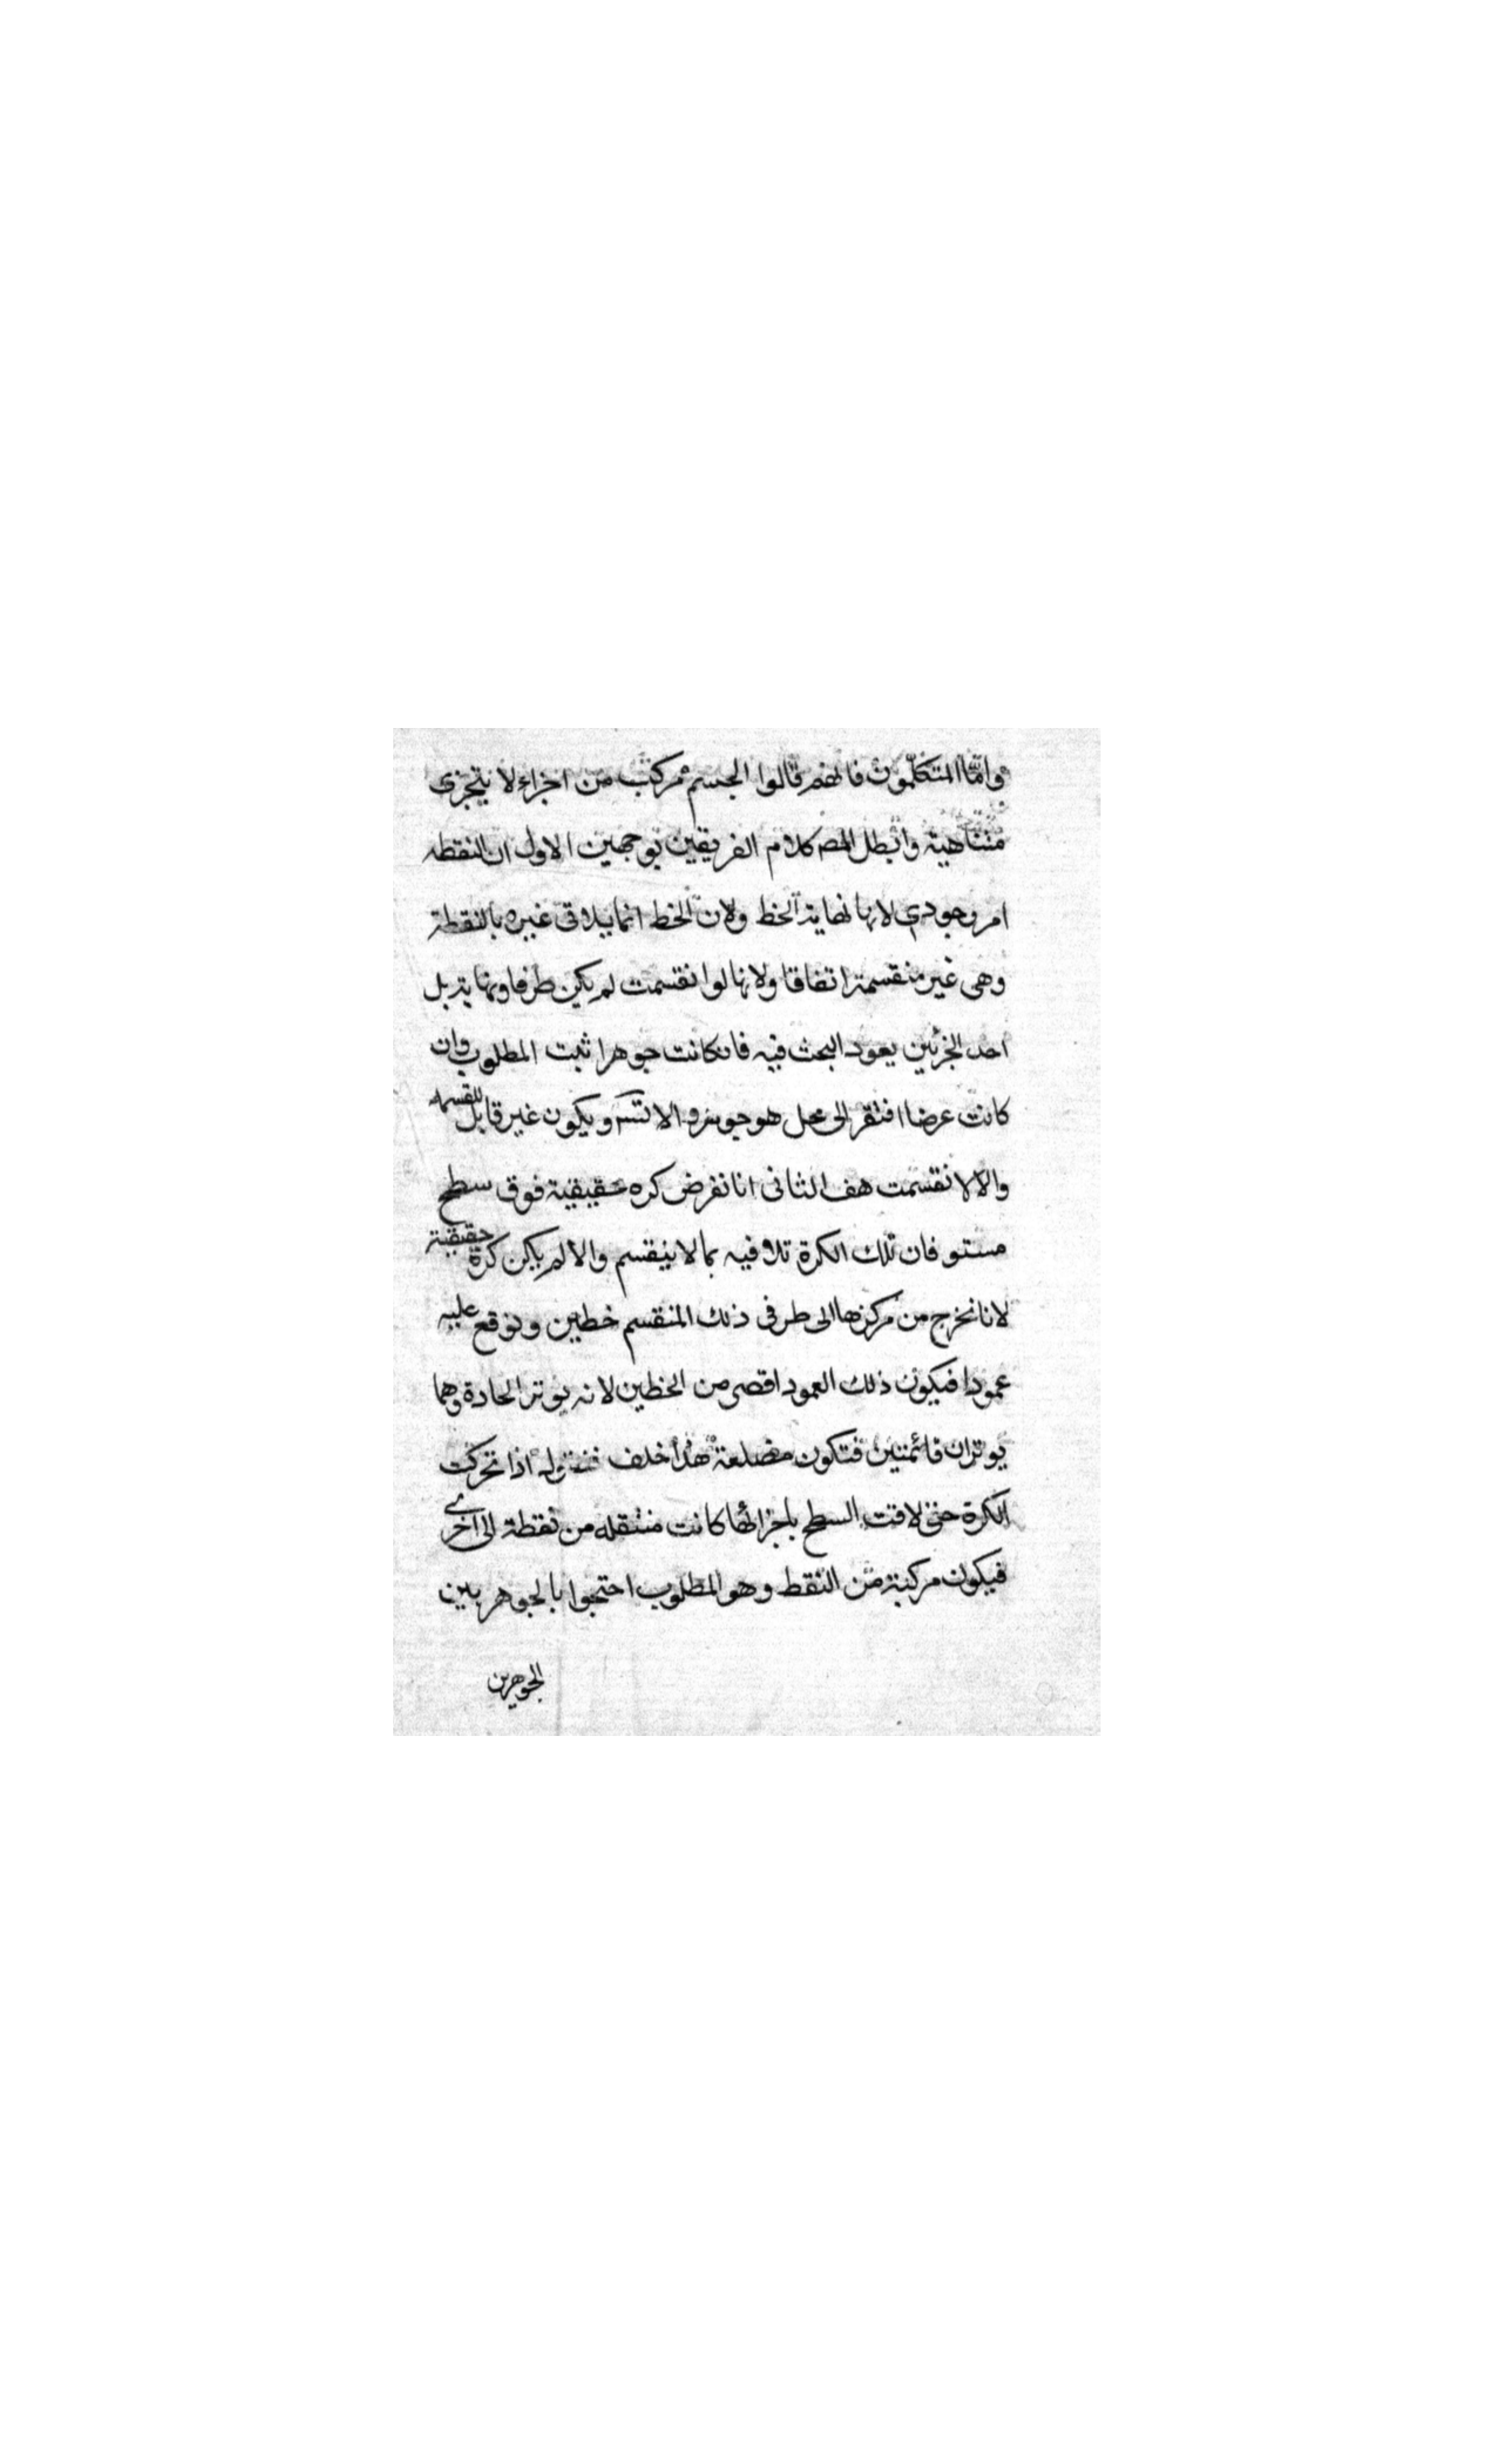 وامّا المتكلّمون فانهم قالوا الجسم مركب من اجزاء لا يتجزى
متناهية وابطل المصه كلام الفريقين بوجهين الاول ان النقطه
امر وجودي لانها نهاية الخط ولان الخط انما يلاقى غيره بالنقطة
وهى غير منقسمة اتفاقا ولانها لو انقسمت لم يكن طرفا ونهاية بل
احد الجزئين يعود البحث فيه فانكانت جوهرا ثبت المطلوب وان
كانت عرضا افتقر الى محل هو جوهر والا لتس ويكون غير قابل للقسمه
والا لانقسمت هف الثانى انا نفرض كره حقيقية فوق سطح
مستو فان تلك الكرة تلاقيه بما لا ينقسم والا لم يكن كرة حقيقية
لانا نخرج من مركزها الى طرفى ذلك المنقسم خطين ونوقع عليه
عمودا فيكون ذلك العمود اقصر من الخطين لانه يوتر الحادة وهما
يوتران قائمتين فتكون مضلعة هذا خلف فنقول اذا تحركت
الكرة حتى لاقت السطح باجزائها كانت منتقله من نقطة الى اخرى
فيكون مركبة من النقط وهو المطلوب احتجوا بالجوهر بين
الجوهرين